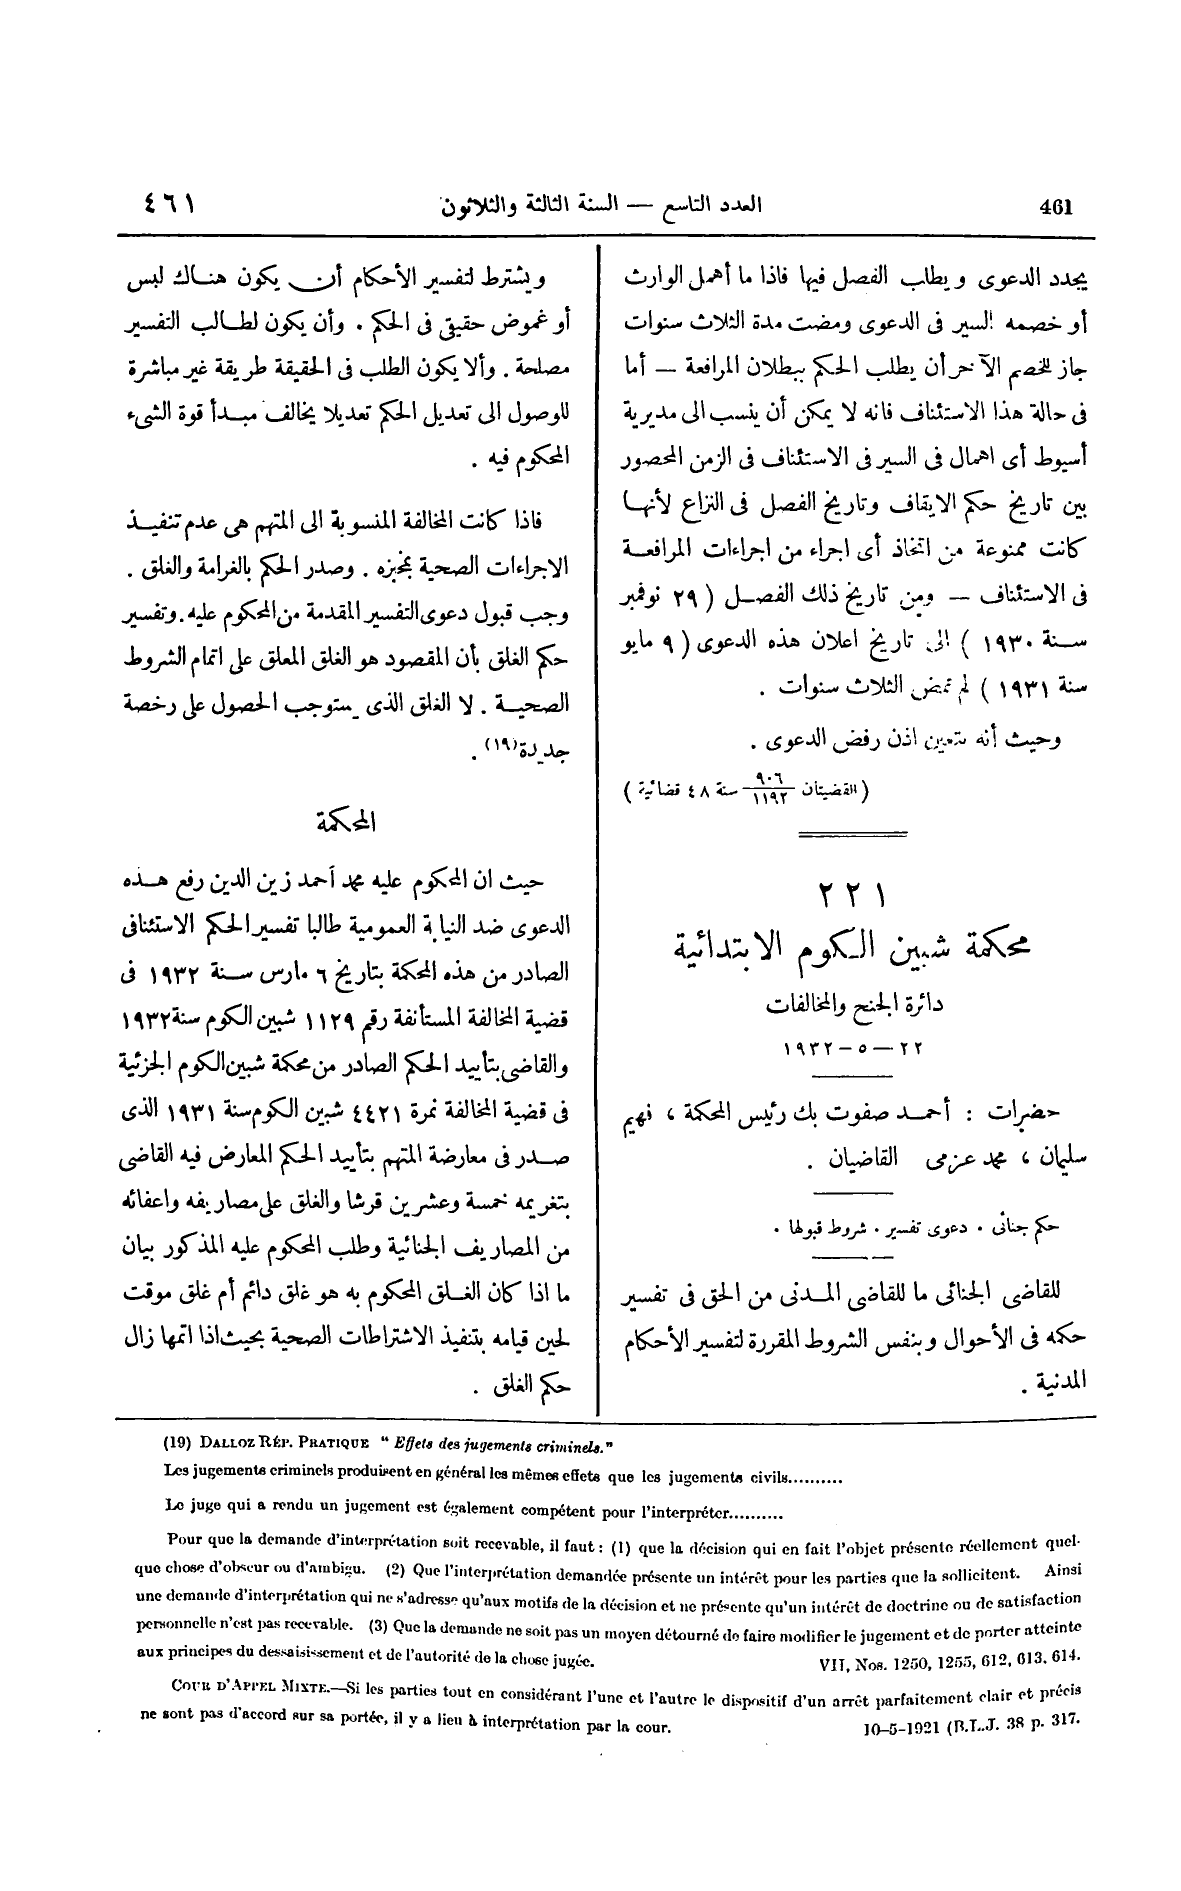 461
العدد التاسع — السنة الثالثة والثلاثون
٤٦١
يجدد الدعوى ويطلب الفصل فيها فاذا ما أهمل الوارث
أو خصمه السير فى الدعوى ومضت مدة الثلاث سنوات
جاز للخصم الآخر أن يطلب الحكم ببطلان المرافعة — أما
فى حالة هذا الاستئناف فانه لا يمكن أن ينسب الى مديرية
أسيوط أى اهمال فى السير فى الاستئناف فى الزمن المحصور
بين تاريخ حكم الايقاف وتاريخ الفصل فى النزاع لأنها
كانت ممنوعة من اتخاذ أى اجراء من اجراءات المرافعة
فى الاستئناف — ومن تاريخ ذلك الفصل ( ٢٩ نوفمبر
سنة ١٩٣٠ ) الى تاريخ اعلان هذه الدعوى ( ٩ مايو
سنة ١٩٣١ ) لم تمض الثلاث سنوات .
وحيث أنه يتعين اذن رفض الدعوى .
( القضيتان ٩٠٦/١١٩٢ سنة ٤٨ قضائية )
٢٢١
محكمة شبين الكوم الابتدائية
دائرة الجنح والمخالفات
٢٢ — ٥ — ١٩٣٢
حضرات : أحمد صفوت بك رئيس المحكمة ، فهيم
سليمان ، محمد عزمى القاضيان .
حكم جنائى . دعوى تفسير . شروط قبولها .
للقاضى الجنائى ما للقاضى المدنى من الحق فى تفسير
حكمه فى الأحوال وبنفس الشروط المقررة لتفسير الأحكام
المدنية .
ويشترط لتفسير الأحكام أن يكون هناك لبس
أو غموض حقيقى فى الحكم . وأن يكون لطالب التفسير
مصلحة . وألا يكون الطلب فى الحقيقة طريقة غير مباشرة
للوصول الى تعديل الحكم تعديلا يخالف مبدأ قوة الشىء
المحكوم فيه .
فاذا كانت المخالفة المنسوبة الى المتهم هى عدم تنفيذ
الاجراءات الصحية بمخبزه . وصدر الحكم بالغرامة والغلق .
وجب قبول دعوى التفسير المقدمة من المحكوم عليه . وتفسير
حكم الغلق بأن المقصود هو الغلق المعلق على اتمام الشروط
الصحية . لا الغلق الذى يستوجب الحصول على رخصة
جديدة (١٩) .
المحكمة
حيث ان المحكوم عليه محمد أحمد زين الدين رفع هذه
الدعوى ضد النيابة العمومية طالبا تفسير الحكم الاستئنافى
الصادر من هذه المحكمة بتاريخ ٦ مارس سنة ١٩٣٢ فى
قضية المخالفة المستأنفة رقم ١١٢٩ شبين الكوم سنة ١٩٣٢
والقاضى بتأييد الحكم الصادر من محكمة شبين الكوم الجزئية
فى قضية المخالفة نمرة ٤٤٢١ شبين الكوم سنة ١٩٣١ الذى
صدر فى معارضة المتهم بتأييد الحكم المعارض فيه القاضى
بتغريمه خمسة وعشرين قرشا والغلق على مصاريفه واعفائه
من المصاريف الجنائية وطلب المحكوم عليه المذكور بيان
ما اذا كان الغلق المحكوم به هو غلق دائم أم غلق موقت
لحين قيامه بتنفيذ الاشتراطات الصحية بحيث اذا اتمها زال
حكم الغلق .
(19) DALLOZ RÉP. PRATIQUE “ Effets des jugements criminels.”
Les jugements criminels produisent en général les mêmes effets que les jugements civils..........
Le juge qui a rendu un jugement est également compétent pour l'interpréter..........
Pour que la demande d'interprétation soit recevable, il faut : (1) que la décision qui en fait l'objet présente réellement quel-
que chose d'obscur ou d'ambigu. (2) Que l'interprétation demandée présente un intérêt pour les parties que la sollicitent. Ainsi
une demande d'interprétation qui ne s'adresse qu'aux motifs de la décision et ne présente qu'un intérêt de doctrine ou de satisfaction
personnelle n'est pas recevable. (3) Que la demande ne soit pas un moyen détourné de faire modifier le jugement et de porter atteinte
aux principes du dessaisissement et de l'autorité de la chose jugée. VII, Nos. 1250, 1255, 612, 613, 614.
COUR D'APPEL MIXTE.—Si les parties tout en considérant l'une et l'autre le dispositif d'un arrêt parfaitement clair et précis
ne sont pas d'accord sur sa portée, il y a lieu à interprétation par la cour. 10-5-1921 (B.L.J. 38 p. 317.